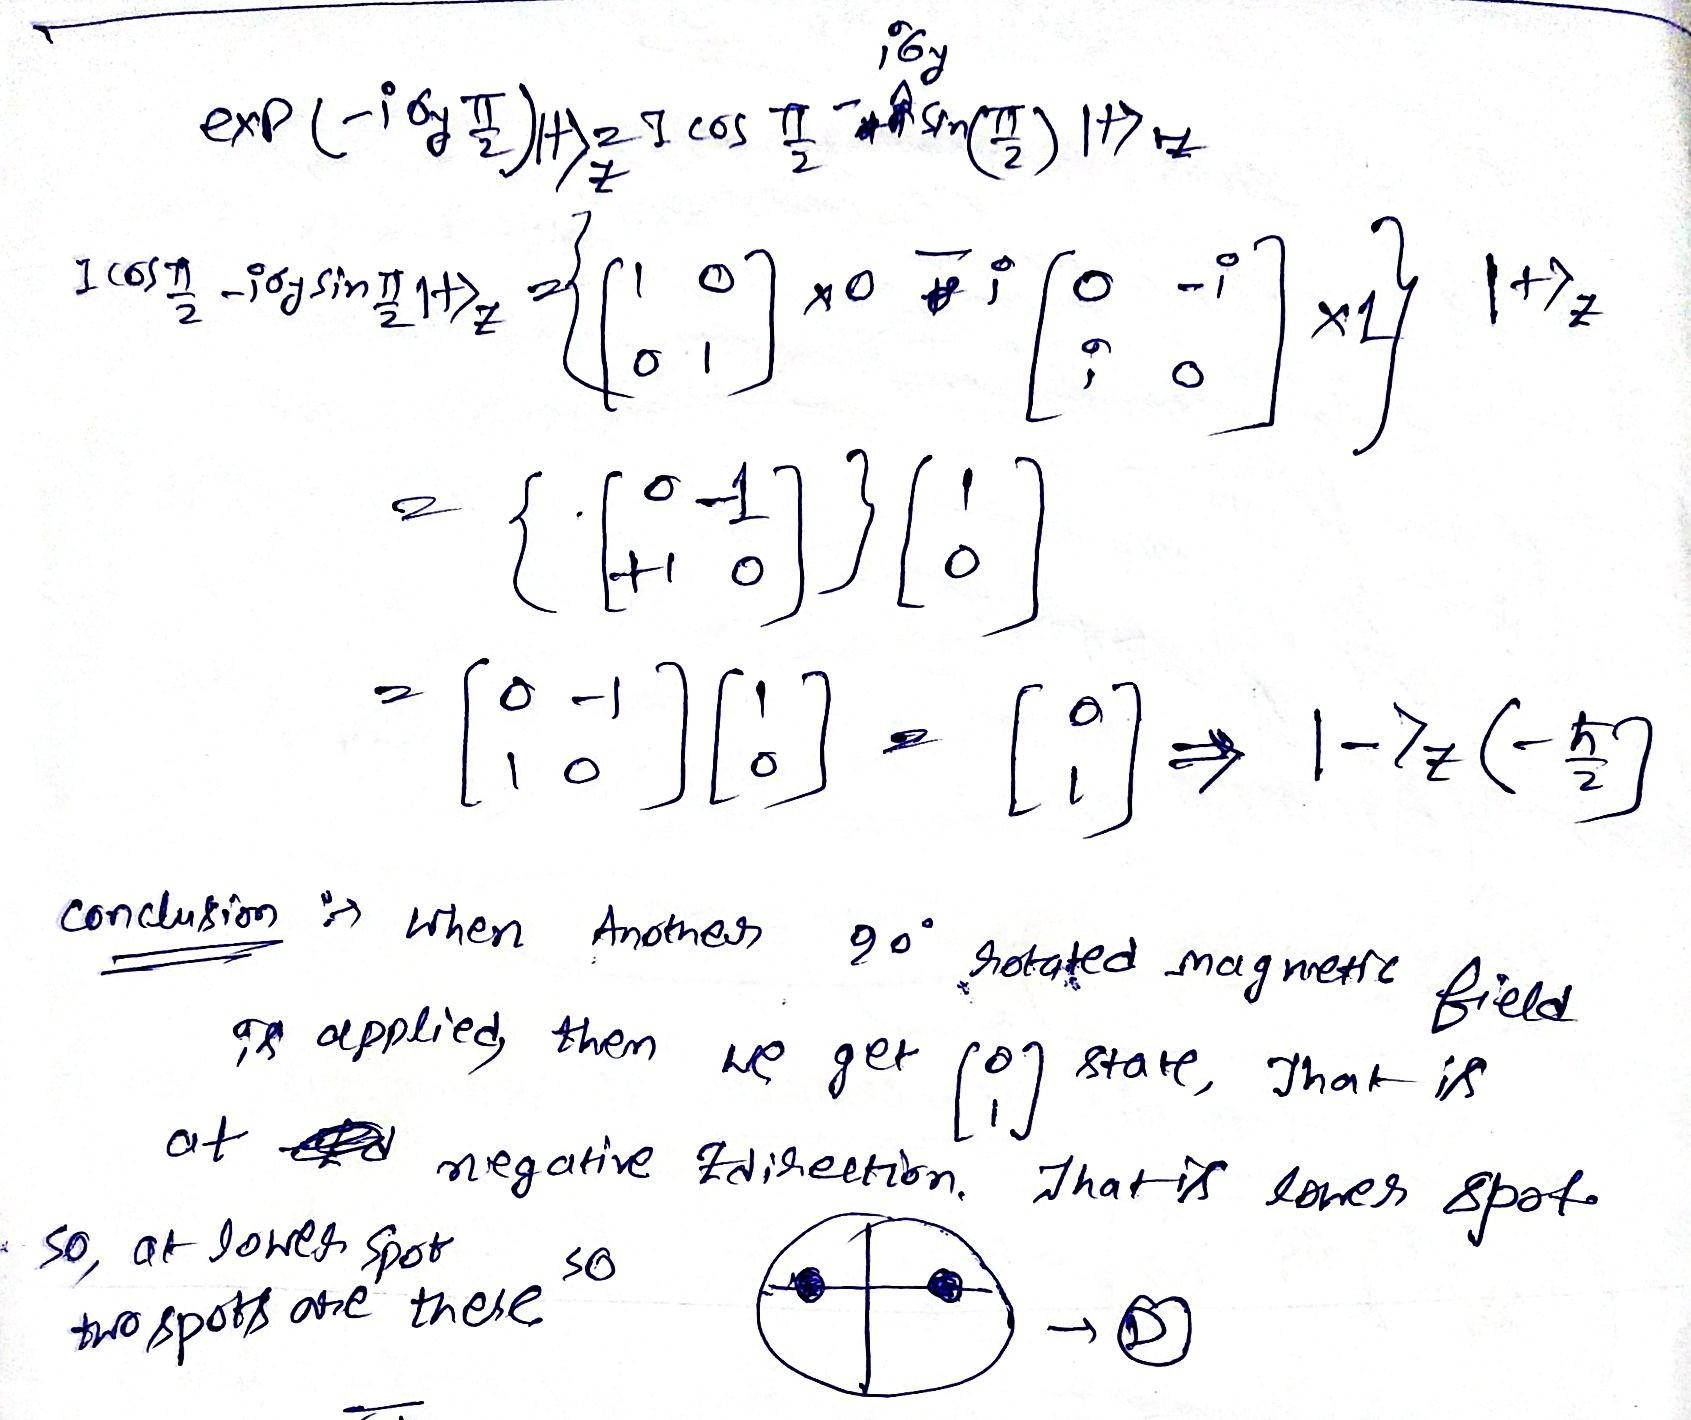 iσy
exp(-iσy π/2)|+>z = I cos π/2 - sin(π/2) |+>z
I cos π/2 - iσy sin π/2 |+>z = { [1 0; 0 1] ×0 - i [0 -i; i 0] ×1 } |+>z
= { [0 -1; +1 0] } [1; 0]
= [0 -1; 1 0] [1; 0] = [0; 1] ⇒ |->z (-ħ/2)
conclusion :→ When Another 90° rotated magnetic field
is applied, then we get [0; 1] state, That is
at negative Z direction. That is lower spot.
so, at lower spot so
two spots are these → D